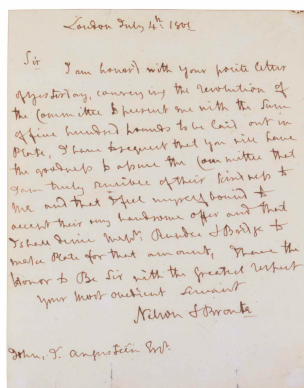 London July 4th: 1801
Sir
I am honor'd with your polite letter
of yesterday, conveying the resolution of
the Committee to present me with the sum
of five hundred pounds to be laid out in
Plate, I have to request that you will have
the goodness to assure the Committee that
I am truly sensible of their kindness to
me and that I feel myself bound to
accept their very handsome offer and that
I shall desire Messrs: Rundle & Bridge to
make Plate for that amount, I have the
honor to Be Sir with the greatest respect
your most obedient Servant
Nelson & Bronte
John, J. Angerstein Esqr.